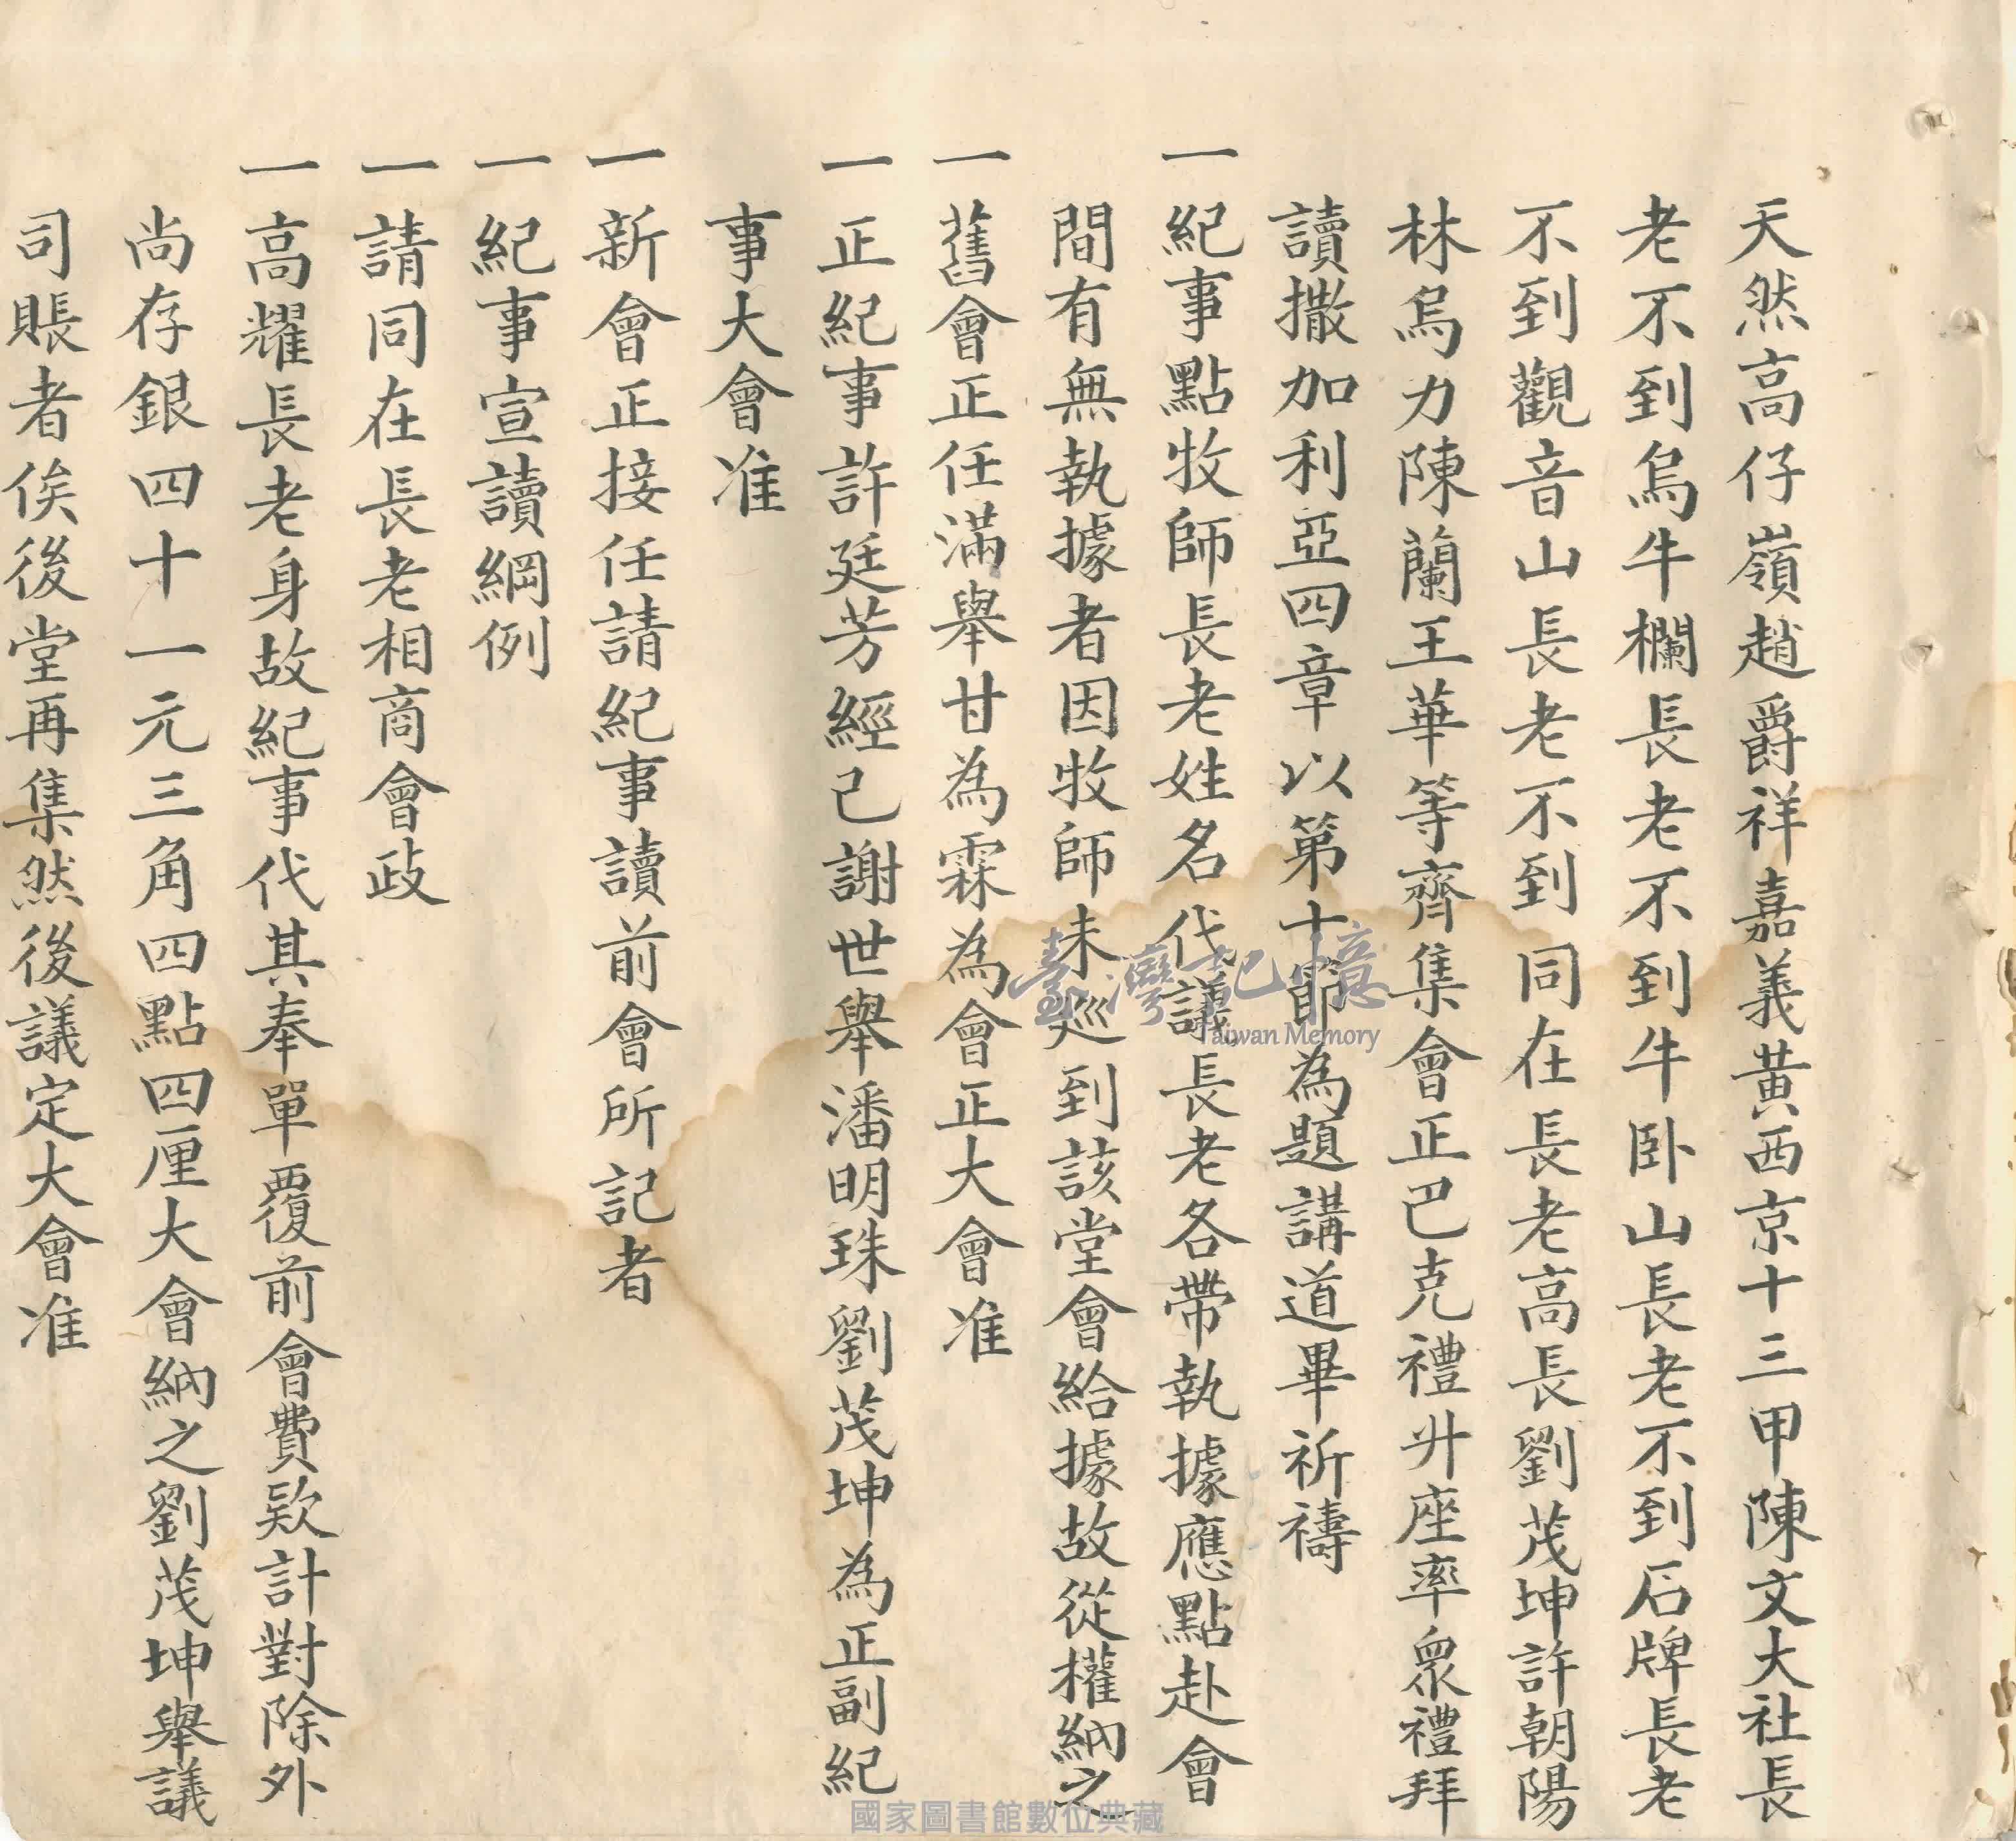 天然高仔嶺趙爵祥嘉義黃西京十三甲陳文大社長
老不到烏牛欄長老不到牛卧山長老不到石牌長老
不到觀音山長老不到同在長老高長劉茂坤許朝陽
林烏力陳蘭王華等齊集會正巴克禮升座率眾禮拜
讀撒加利亞四章以第十節為題講道畢祈禱
一紀事點牧師長老姓名代議長老各帶執據應點赴會
間有無執據者因牧師未巡到該堂會給據故從權納之
一舊會正任滿舉甘為霖為會正大會准
一正紀事許廷芳經已謝世舉潘明珠劉茂坤為正副紀
事大會准
一新會正接任請紀事讀前會所記者
一紀事宣讀綱例
一請同在長老相商會政
一高耀長老身故紀事代其奉單覆前會費欵計對除外
尚存銀四十一元三角四點四厘大會納之劉茂坤舉議
司賬者俟後堂再集然後議定大會准
臺灣記憶
Taiwan Memory
國家圖書館數位典藏